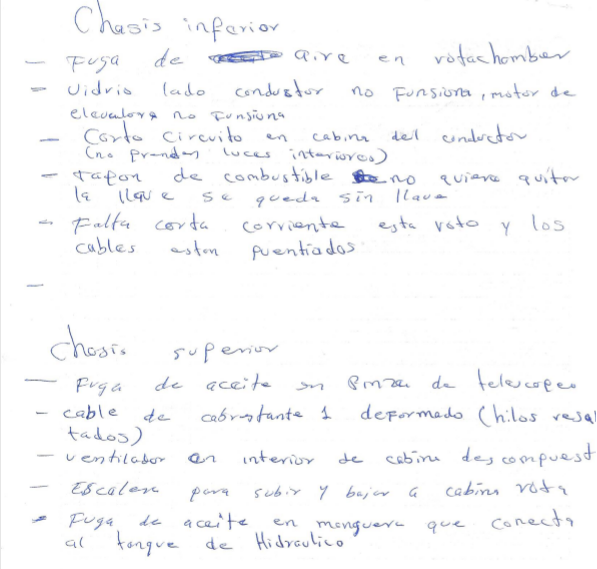 Chasis inferior
- Fuga de aire en rotachamber
- Vidrio lado conductor no Funsiona, motor de
elevalora no Funsiona
- Corto Circuito en cabina del conductor
(no prenden luces interiores)
- tapon de combustible no quiere quitar
la llave se queda sin llave
- Falta corta corriente esta roto y los
cables estan puentiados
-
Chasis superior
- Fuga de aceite en de telescopeo
- cable de cabrestante 1 deformado (hilos resal
tados)
- ventilador en interior de cabina descompuest
- Escalera para subir y bajar a cabina rota
- Fuga de aceite en manguera que conecta
al tanque de Hidraulico